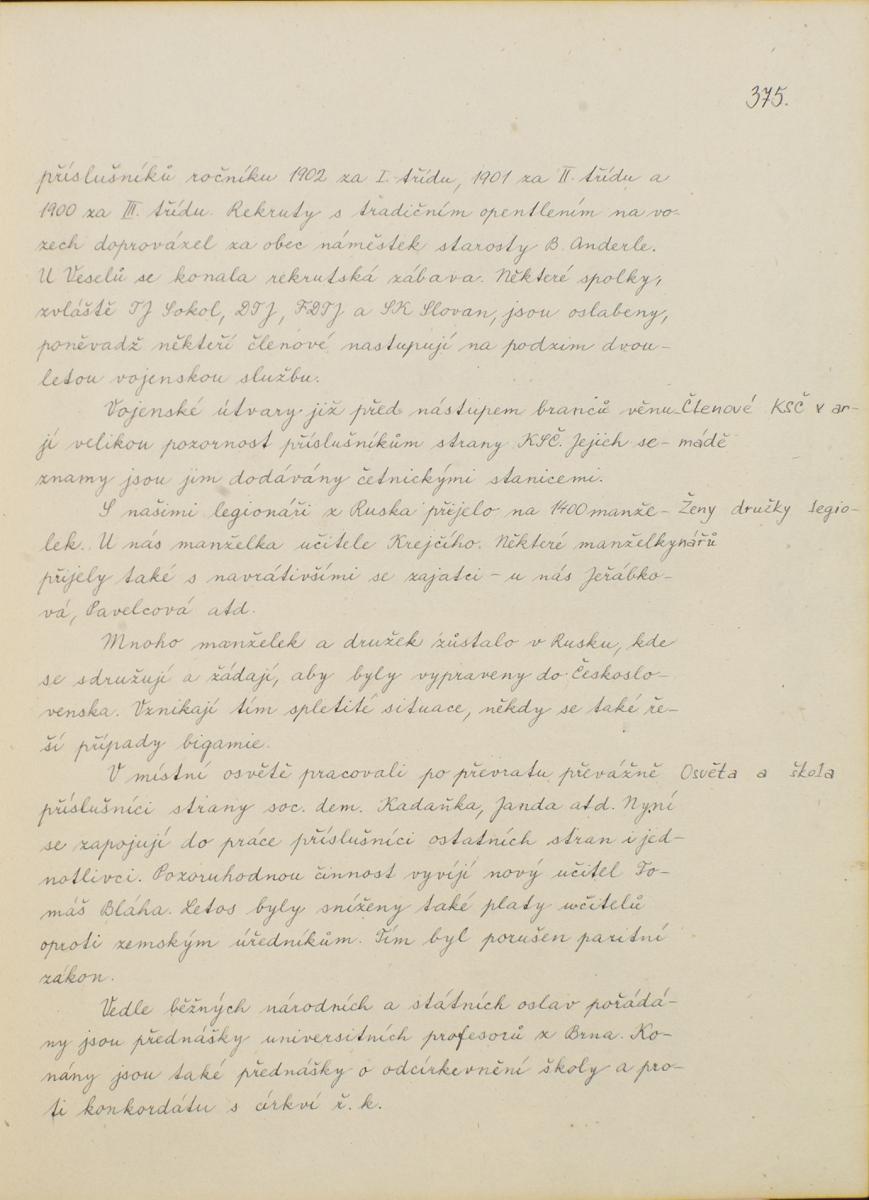 375.
příslušníků ročníku 1902 za I. třídu, 1901 za II. třídu a
1900 za III. třídu. Rekruty s tradičním opentlením na vo-
zech doprovázel za obec náměstek starosty B. Anderle.
U Veselů se konala rekrutská zábava. Některé spolky,
zvláště TJ Sokol, DTJ, FDTJ a SK Slovan, jsou oslabeny,
poněvadž někteří členové nastupují na podzim dvou-
letou vojenskou službu.
Vojenské útvary již před nástupem branců věnu-
Čtenové KSČ v ar-
jí velikou pozornost příslušníkům strany KSČ. Jejich se-
mádě
znamy jsou jim dodávány četnickými stanicemi.
S našimi legionáři z Ruska přijelo na 1400 manže-
Ženy družky legio-
lek. U nás manželka učitele Krejčího. Některé manželky
nářů
přijely také s navrátivšími se zajatci - u nás Jeřábko-
vá, Pavelcová atd.
Mnoho manželek a družek zůstalo v Rusku, kde
se sdružují a žádají, aby byly vypraveny do Českoslo-
venska. Vznikají tím spletité situace, někdy se také ře-
ší případy bigamie.
V místní osvětě pracovali po převratu převážně
Osvěta a škola
příslušníci strany soc. dem. Kadaňka, Janda atd. Nyní
se zapojují do práce příslušníci ostatních stran i jed-
notlivci. Pozoruhodnou činnost vyvíjí nový učitel To-
máš Bláha. Letos byly sníženy také platy učitelů
oproti zemským úředníkům. Tím byl porušen paritní
zákon.
Vedle běžných národních a státních oslav pořádá-
ny jsou přednášky universitních profesorů z Brna. Ko-
nány jsou také přednášky o odcírkevnění školy a pro-
ti konkordátu s církví ř. k.